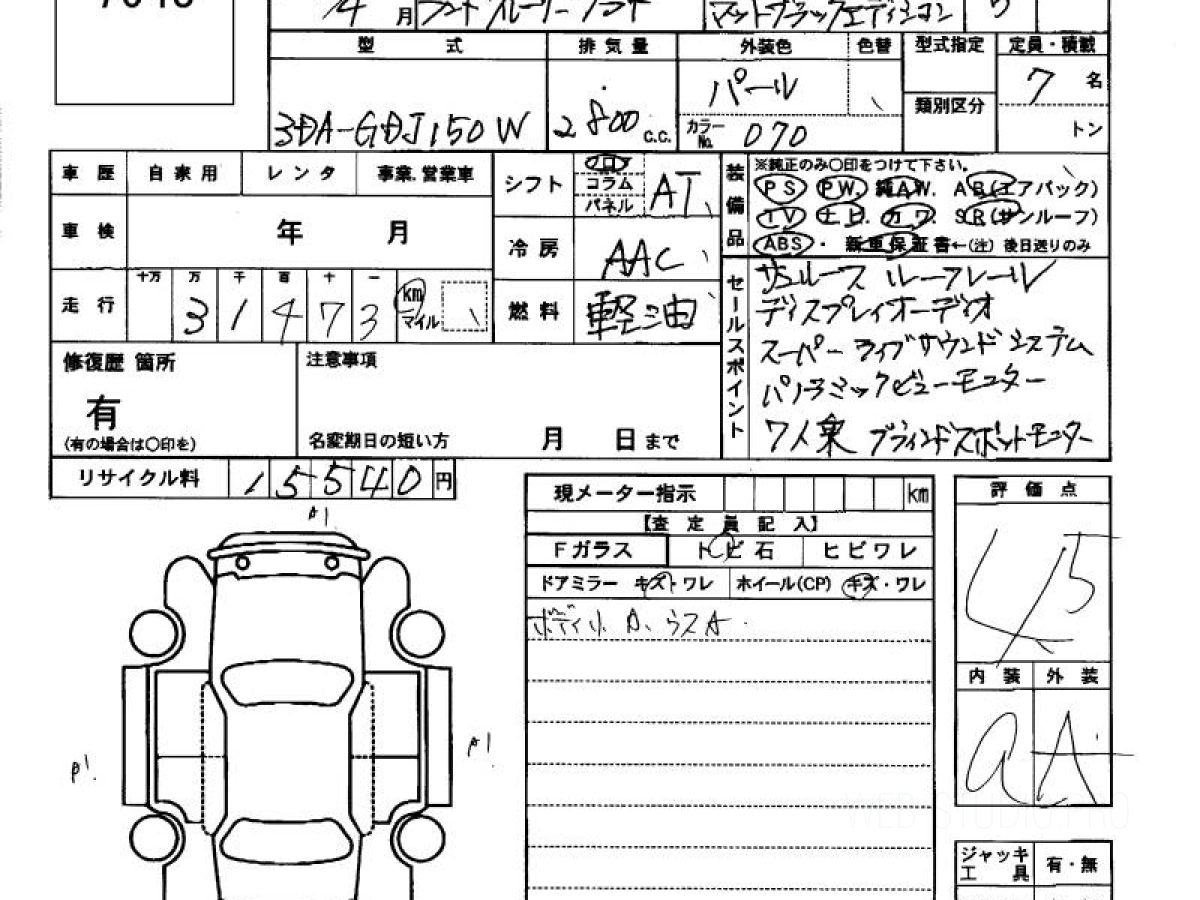 月 ランドクルーザープラド マットブラックエディション 5
型 式 排気量 外装色 色替 型式指定 定員・積載
パール 7 名
類別区分
3DA-GDJ150W 2800 c.c. カラーNo. 070 トン
車歴 自家用 レンタ 事業.営業車
車検 年 月
走行 十万 万 千 百 十 一
3 1 4 7 3 km マイル
シフト フロア コラム パネル AT
冷房 AAC
燃料 軽油
装備品 ※純正のみ○印をつけて下さい。
PS PW. 純AW. AB(エアバック)
TV ナビ. カワ. SR(サンルーフ)
ABS・ 新車保証書←(注) 後日送りのみ
セールスポイント
サンルーフ ルーフレール
ディスプレイオーディオ
スーパーライブサウンドシステム
パノラミックビューモニター
7人乗 ブラインドスポットモニター
修復歴 箇所
有
(有の場合は○印を)
注意事項
名変期日の短い方 月 日まで
リサイクル料 15540円
A1
A1
A1
現メーター指示 km
【査定員記入】
Fガラス トビ石 ヒビワレ
ドアミラー キズ・ワレ ホイール(CP) キズ・ワレ
評価点
4.5
内装 外装
a A
ジャッキ 工具 有・無
WEB STUDIO.PRO